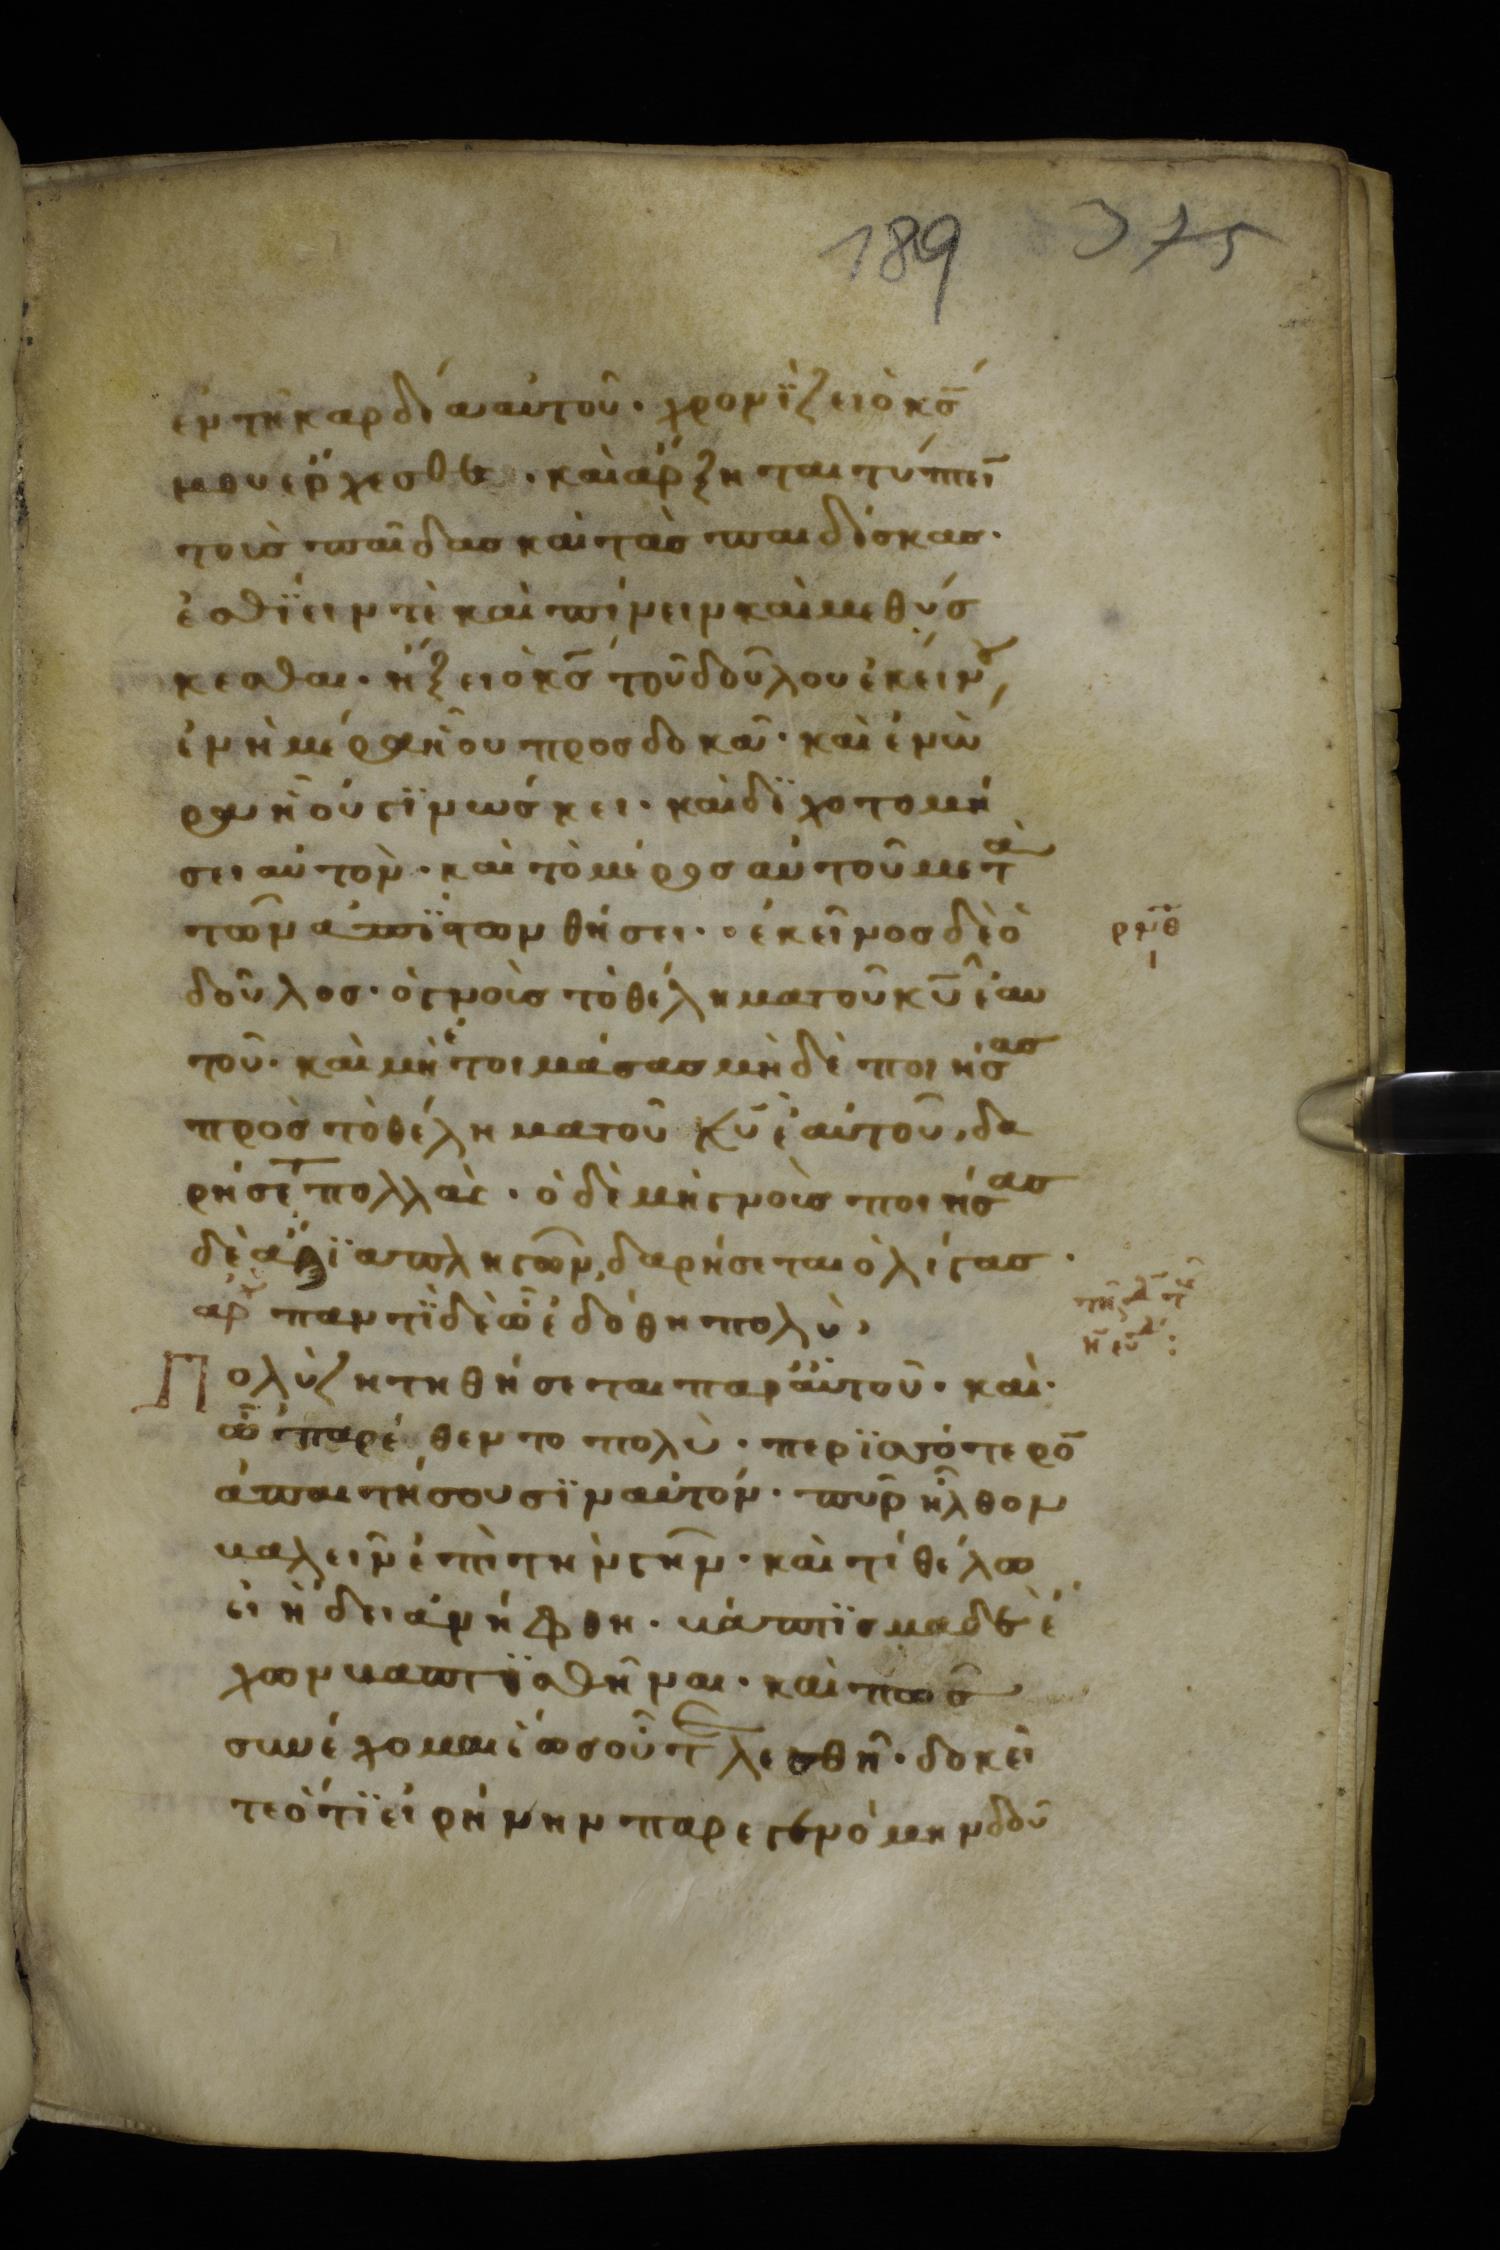 189 375
ἐν τῆ καρδία αὐτοῦ· χρονΐζει ὁ κ̅ς̅
μου ἔρχεσθαι· καὶ ἄρξηται τύπτει̅
τοὺς παῖδας καὶ τὰς παιδίσκας·
ἐσθΐειν τὲ καὶ πίνειν καὶ μεθύσ
κεσθαι· ἥξει ὁ κ̅ς̅ τοῦ δούλου ἐκείνου,
ἐν ἡμέρα ἧ οὐ προσδοκᾶ· καὶ ἐν ὥ
ρα ἧ οὐ γϊνώσκει· καὶ δϊχοτομή
σει αὐτὸν· καὶ τὸ μέρος αὐτοῦ μετὰ
τῶν ἀπΐστων θήσει· ἐκεῖνος δὲ ὁ
ρνθ
ι
δοῦλος· ὁ γνοὺς τὸ θέλημα τοῦ κ̅υ̅ ἑαυ
τοῦ· καὶ μὴ ἑτοιμάσας μὴ δὲ ποιήσας
πρὸς τὸ θέλημα τοῦ κ̅υ̅ ἑαυτοῦ, δα
ρήσεται πολλάς· ὁ δὲ μὴ γνοὺς ποιήσας
δὲ ἄξϊα πληγῶν, δαρήσεται ὀλίγας·
αρχ παντΐ δὲ ὧ ἐδόθη πολὺ,
Πολὺ ζητηθήσεται παρ' αὐτοῦ· καὶ·
ὧ παρέθεντο πολὺ· περϊσσότερο̅
ἀπαιτήσουσϊν αὐτόν· πῦρ ἦλθον
βαλεῖν ἐπὶ τὴν γῆν· καὶ τί θέλω
εἰ ἤδει ἀνήφθη· βάπτϊσμα δὲ ἔ
χων βαπτϊσθῆναι· καὶ πῶς
συνέχομαι ἕως οὗ τελεσθῆ· δοκεῖ
τε ὅτϊ εἰρήνην παρεγενόμην δοῦ